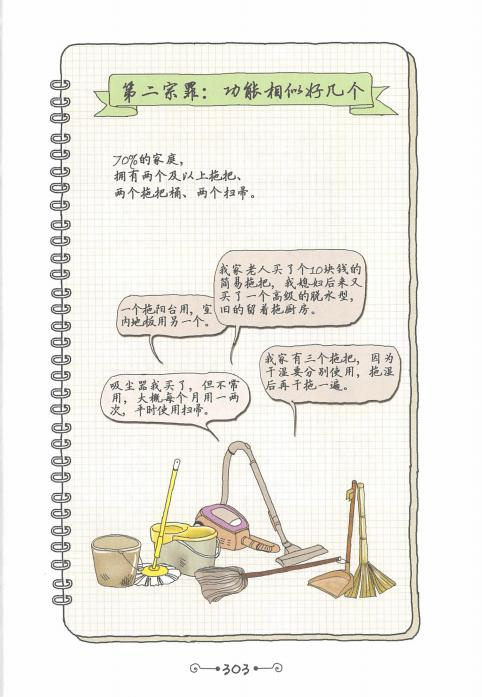 第二宗罪：功能相似好几个
70%的家庭，
拥有两个及以上拖把、
两个拖把桶、两个扫帚。
我家老人买了个10块钱的
简易拖把，我媳妇后来又
买了一个高级的脱水型，
旧的留着拖厨房。
一个拖阳台用，室
内地板用另一个。
我家有三个拖把，因为
干湿要分别使用，拖湿
后再干拖一遍。
吸尘器我买了，但不常
用，大概每个月用一两
次，平时使用扫帚。
303